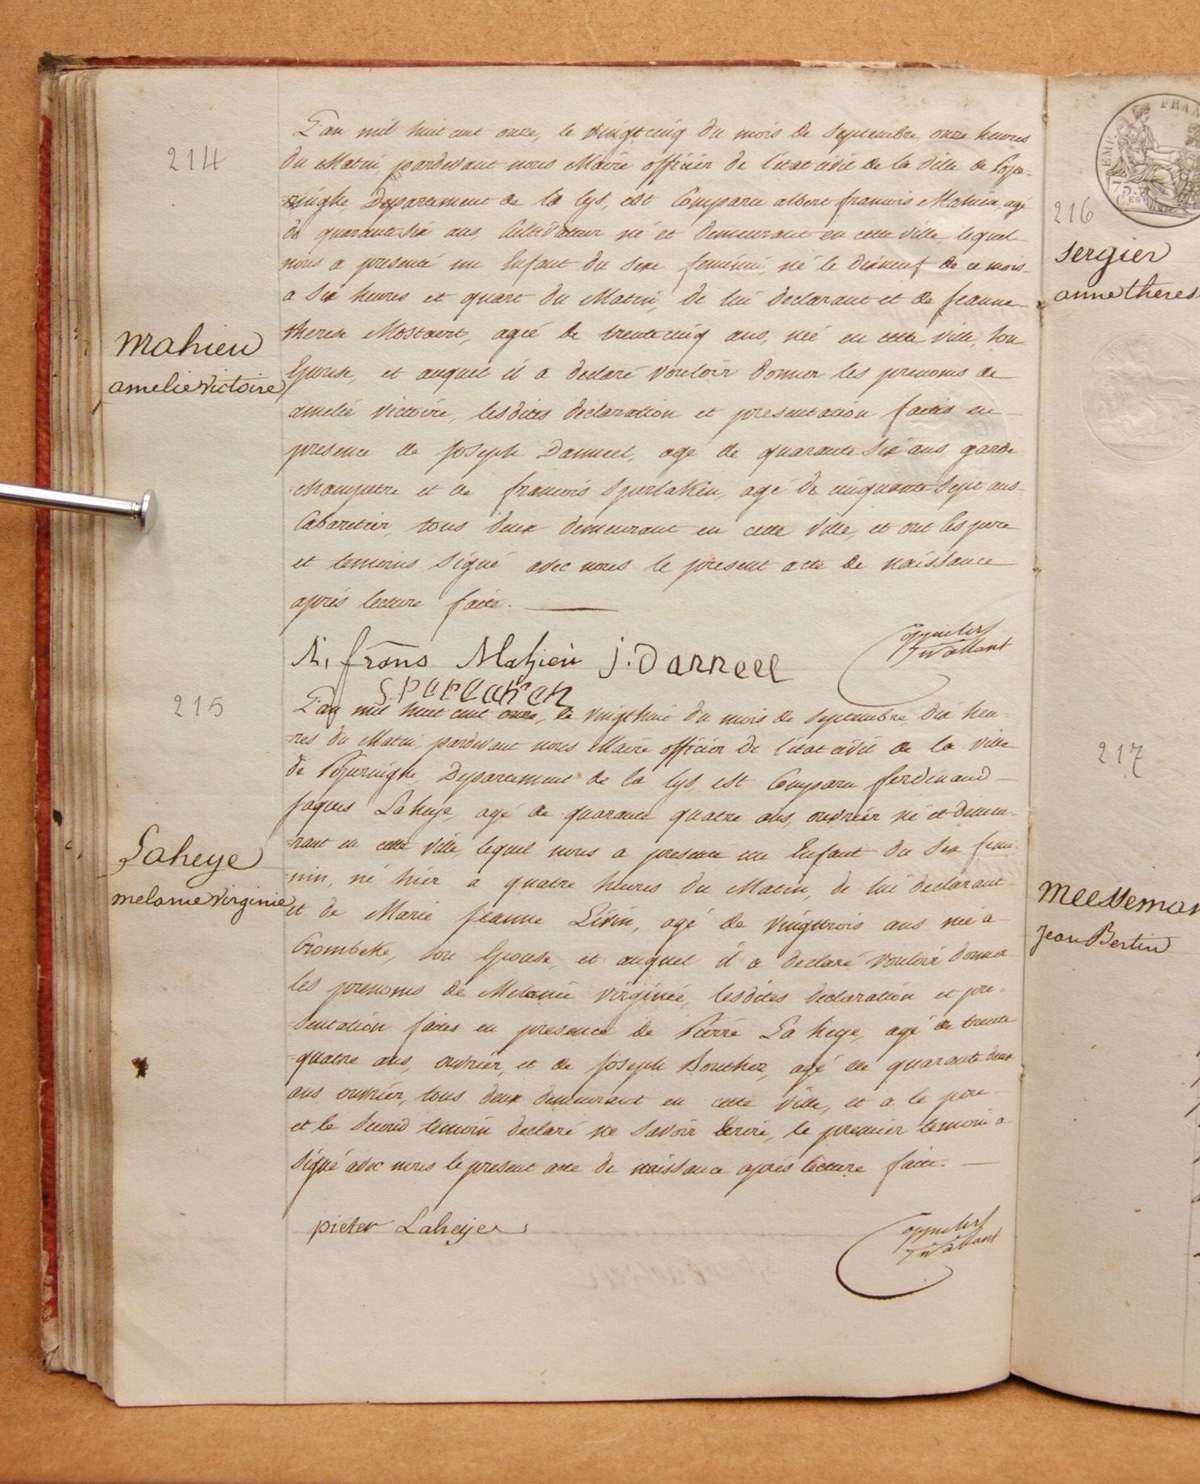 214
Mahieu
amelie victoire
L'an mil huit cent onze, le vingtcinq du mois de septembre, onze heures
du Matin, pardevant nous Maire officier de l'état civil de la ville de Pope-
-ringhe Departement de la Lys, est Comparu albert francois Mahieu, agé
de quarante six ans, Cultivateur né et demeurant en cette ville, lequel
nous a presenté un Enfant du sexe feminin, né le dixneuf de ce mois
a six heures et quart du Matin, de lui declarant et de Jeanne
therese Mostaert, agée de trentecinq ans, née en cette ville, son
Epouse, et auquel il a declaré vouloir donner les prenoms de
amelie victoire, lesdites déclaration et presentation faites en
presence de Joseph Danneel, agé de quarante six ans garde
champetre et de francois Sperlaken, agé de cinquante sept ans
Cabaretier, tous deux demeurant en cette ville, et ont les pere
et temoins signé avec nous le present acte de naissance
après lecture faite.
frāns Mahieu J. Danneel
215
Laheye
melanie virginie
L'an mil huit cent onze, le vingthuit du mois de septembre, dix heu-
-res du Matin, pardevant nous Maire officier de l'état civil de la ville
de Poperinghe, Departement de la Lys, est Comparu ferdinand
Jaques Laheye, agé de quarante quatre ans, ouvrier né et demeu-
-rant en cette ville, lequel nous a presenté un Enfant du sexe femi-
-nin, né hier a quatre heures du Matin, de lui declarant
et de Marie Jeanne Livin, agé de vingttrois ans née a
Crombeke, son Epouse, et auquel il a declaré vouloir donner
les prenoms de Melanie virginie, lesdites declaration et pre-
-sentation faites en presence de Pierre Laheye, agé de trente
quatre ans, ouvrier, et de Joseph Bouchez, agé de quarante deux
ans ouvrier, tous deux demeurant en cette ville, et a le pere
et le second temoin declaré ne savoir Ecrire, le premier temoin a
signé avec nous le present acte de naissance après lecture faite.
pieter Laheije
216
Sergier
anne theres
217
Meesseman
Jean Bertin